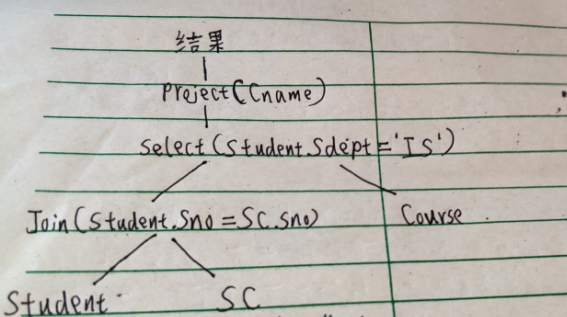 结果
Project(Cname)
Select(Student.Sdept='IS')
Join(Student.Sno=SC.Sno) Course
Student SC